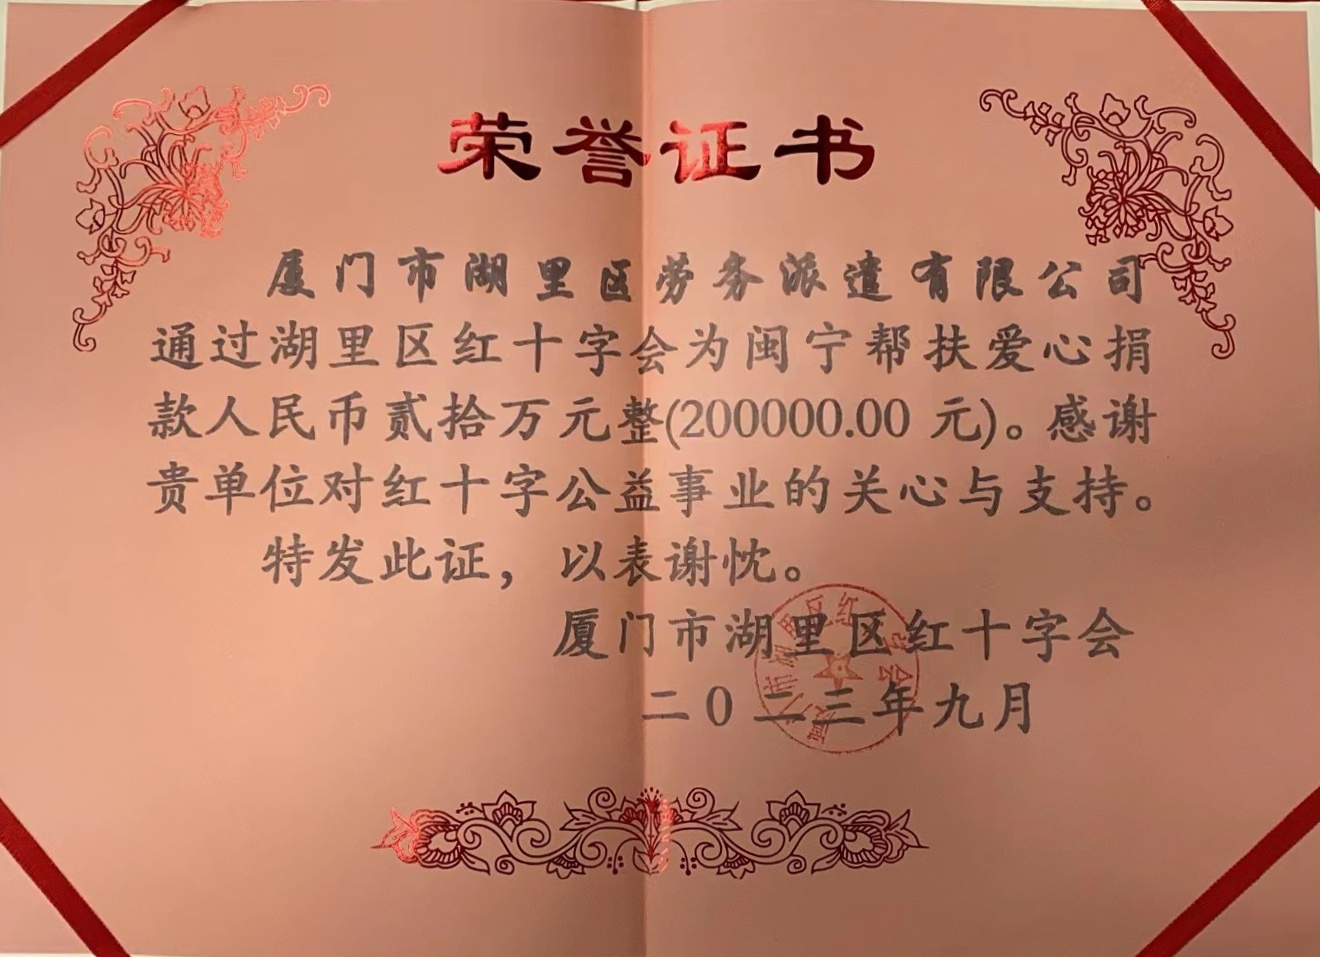 荣誉证书
厦门市湖里区劳务派遣有限公司
通过湖里区红十字会为闽宁帮扶爱心捐
款人民币贰拾万元整(200000.00 元)。感谢
贵单位对红十字公益事业的关心与支持。
特发此证，以表谢忱。
厦门市湖里区红十字会
二0二三年九月
厦门市湖里区红十字会